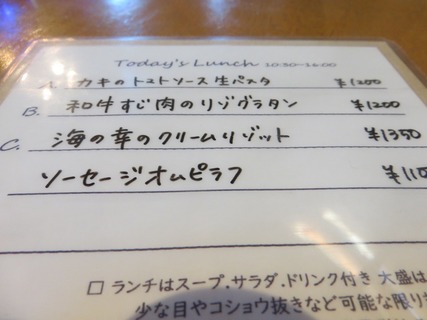 Today's Lunch 10:30~16:00
A. カキのトマトソース生パスタ ¥1200
B. 和牛すじ肉のリゾグラタン ¥1200
C. 海の幸のクリームリゾット ¥1350
ソーセージオムピラフ ¥110
□ ランチはスープ.サラダ.ドリンク付き 大盛は
少な目やコショウ抜きなど可能な限り